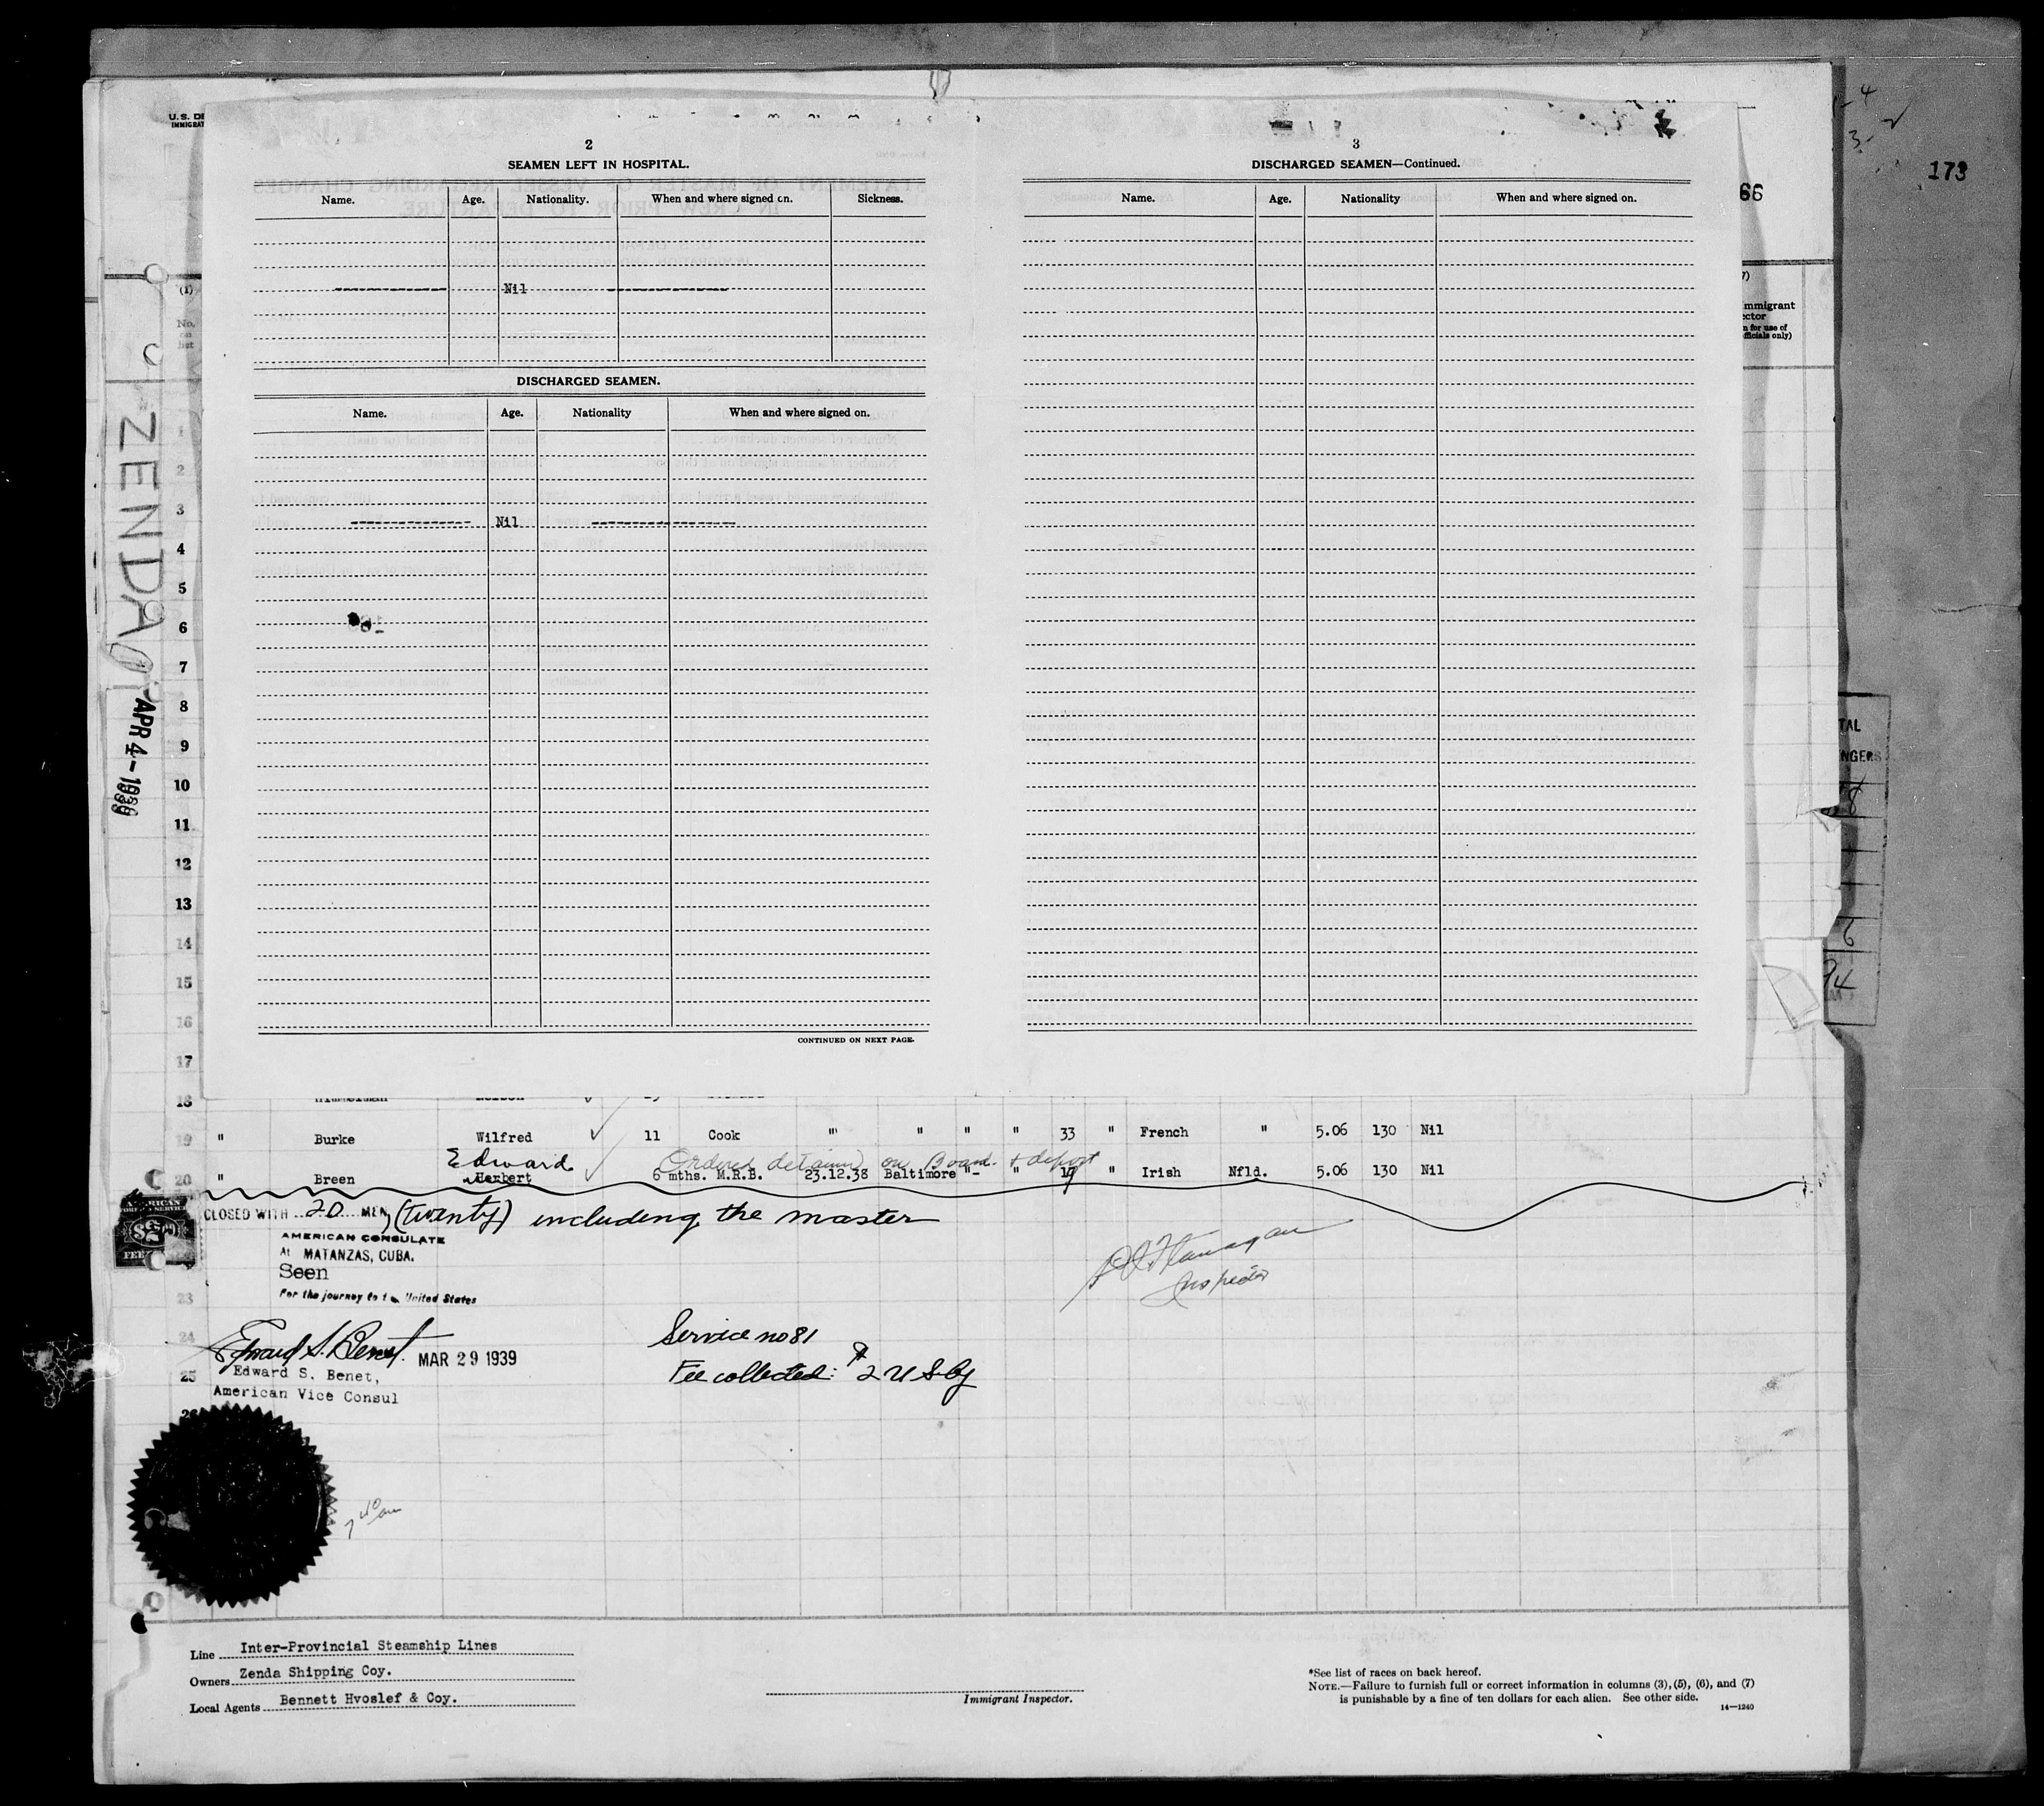 U.S. DE
IMMIGRAT
2
SEAMEN LEFT IN HOSPITAL.
Name. Age. Nationality. When and where signed on. Sickness.
Nil
DISCHARGED SEAMEN.
Name. Age. Nationality When and where signed on.
Nil
CONTINUED ON NEXT PAGE.
3
DISCHARGED SEAMEN—Continued.
Name. Age. Nationality When and where signed on.
173
66
(1)
No.
on
list
7)
mmigrant
ector
n for use of
fficials only)
ZENDA
APR 4-1939
TAL
NGERS
1
2
3
4
5
6
7
8
9
10
11
12
13
14
15
16
17
18
19 " Burke Wilfred 11 Cook " " " " 33 " French " 5.06 130 Nil
Edward Ordered detained on Board & deport
20 " Breen Herbert 6 mths. M.R.B. 23.12.38 Baltimore "- " 17 " Irish Nfld. 5.06 130 Nil
CLOSED WITH 20 MEN, (twenty) including the master
AMERICAN CONSULATE
At MATANZAS, CUBA.
Seen
For the journey to the United States
Flanagan
Inspector
23
24
Edward S. Benet. MAR 29 1939
25 Edward S. Benet,
American Vice Consul
Service no 81
Fee collected: $2 US Cy
Line Inter-Provincial Steamship Lines
Owners Zenda Shipping Coy.
Local Agents Bennett Hvoslef & Coy.
Immigrant Inspector.
*See list of races on back hereof.
NOTE.—Failure to furnish full or correct information in columns (3), (5), (6), and (7)
is punishable by a fine of ten dollars for each alien. See other side.
14—1240